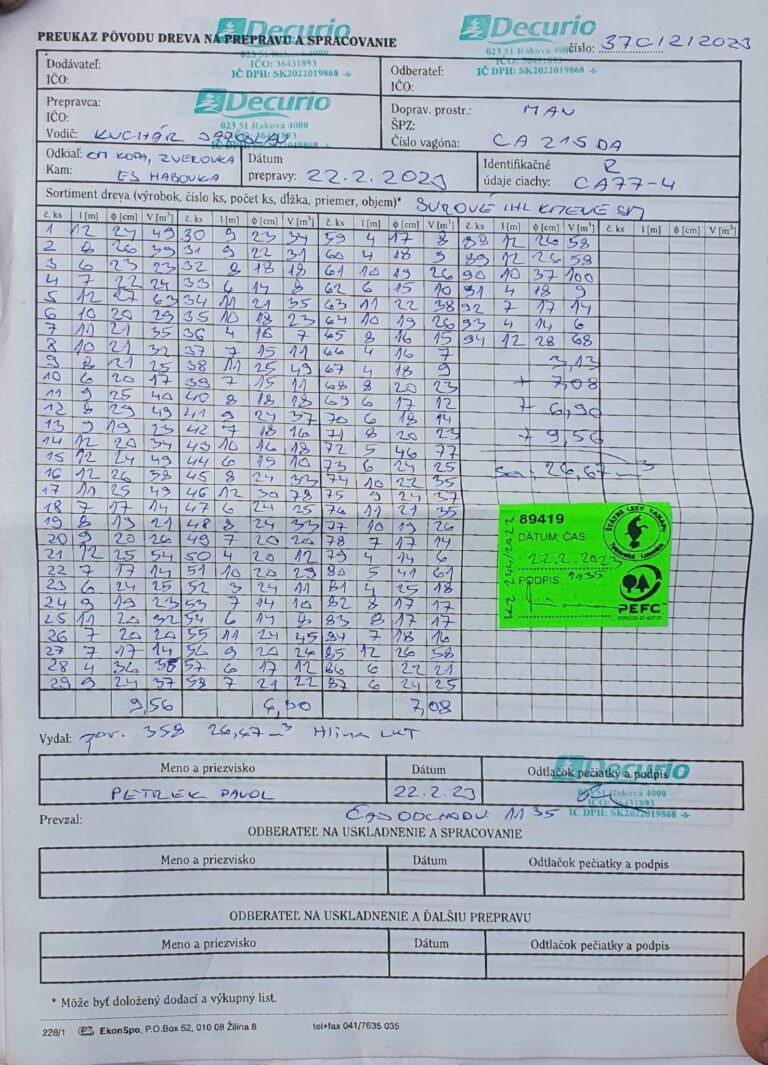 PREUKAZ PÔVODU DREVA NA PREPRAVU A SPRACOVANIE
Decurio
023 51 Raková 4000
IČO: 36431893
IČ DPH: SK2022019868 -6-
Decurio
023 51 Raková 4000
IČ DPH: SK2022019868 -6-
číslo:
Dodávateľ:
IČO:
Odberateľ:
IČO:
Prepravca:
IČO:
Decurio
023 51 Raková 4000
Vodič: KUCHÁR
Doprav. prostr.: MAN
ŠPZ:
Číslo vagóna: CA 215DA
Odkiaľ: ZVEROVKA
Kam: ES HABOVKA
Dátum
prepravy: 22.2.2023
Identifikačné R
údaje ciachy: CA77-4
Sortiment dreva (výrobok, číslo ks, počet ks, dĺžka, priemer, objem)* SUROVÉ IHL KMEŇE SM
č. ks l [m] ϕ [cm] V [m³] č. ks l [m] ϕ [cm] V [m³] č. ks l [m] ϕ [cm] V [m³] č. ks l [m] ϕ [cm] V [m³] č. ks l [m] ϕ [cm] V [m³]
1 12 24 49 30 9 23 34 59 4 17 8 88 12 26 58
2 8 26 39 31 9 22 31 60 4 18 9 89 12 26 58
3 6 23 23 32 8 18 18 61 10 19 26 90 10 37 100
4 7 22 24 33 6 14 8 62 6 15 10 91 4 18 9
5 12 27 63 34 11 21 35 63 11 22 38 92 7 17 14
6 10 20 29 35 10 18 23 64 10 19 26 93 4 14 6
7 11 21 35 36 4 16 7 65 8 16 15 94 12 28 68
8 10 21 32 37 7 15 11 66 4 16 7
9 8 21 25 38 11 25 49 67 4 18 9 3,13
10 6 20 17 39 7 15 11 68 8 20 23 + 7,08
11 9 25 40 40 8 18 18 69 6 17 12
12 8 29 49 41 9 24 37 70 6 18 14 + 6,90
13 9 19 23 42 7 18 16 71 8 20 23
14 12 20 34 43 10 16 18 72 5 46 77 + 9,56
15 12 24 49 44 6 15 10 73 6 24 25
16 12 26 58 45 8 24 33 74 10 22 35 26,67 m³
17 11 25 49 46 12 30 78 75 9 24 37
18 7 17 14 47 6 24 25 76 11 21 35
19 8 19 21 48 8 24 33 77 10 19 26
20 9 20 26 49 7 20 20 78 7 17 14
21 12 25 54 50 4 20 12 79 4 14 6
22 7 17 14 51 10 20 29 80 5 41 61
23 6 24 25 52 3 24 11 81 4 25 18
24 9 19 23 53 7 14 10 82 8 17 17
25 11 20 32 54 6 14 8 83 8 17 17
26 7 20 20 55 11 24 45 84 7 18 16
27 7 17 14 56 9 20 26 85 12 26 58
28 4 36 57 6 17 12 86 6 22 21
29 9 24 37 58 7 21 22 87 6 24 25
9,56 6,90 7,08
89419
DÁTUM; ČAS:
22.2.2023
1135
PODPIS:
ŠTÁTNE LESY TANAPU
Tatranská Lomnica
PEFC™
Vydal: por. 358 26,67 m³ Hlina LKT
Meno a priezvisko Dátum Odtlačok pečiatky a podpis
PETREK PAVOL 22.2.23
Decurio
023 51 Raková 4000
IČO: 36431893
IČ DPH: SK2022019868 -6-
Prevzal: ČAS ODCHODU 1135
ODBERATEĽ NA USKLADNENIE A SPRACOVANIE
Meno a priezvisko Dátum Odtlačok pečiatky a podpis
ODBERATEĽ NA USKLADNENIE A ĎALŠIU PREPRAVU
Meno a priezvisko Dátum Odtlačok pečiatky a podpis
* Môže byť doložený dodací a výkupný list.
228/1 ES EkonSpo, P.O.Box 52, 010 08 Žilina 8 tel+fax 041/7635 035